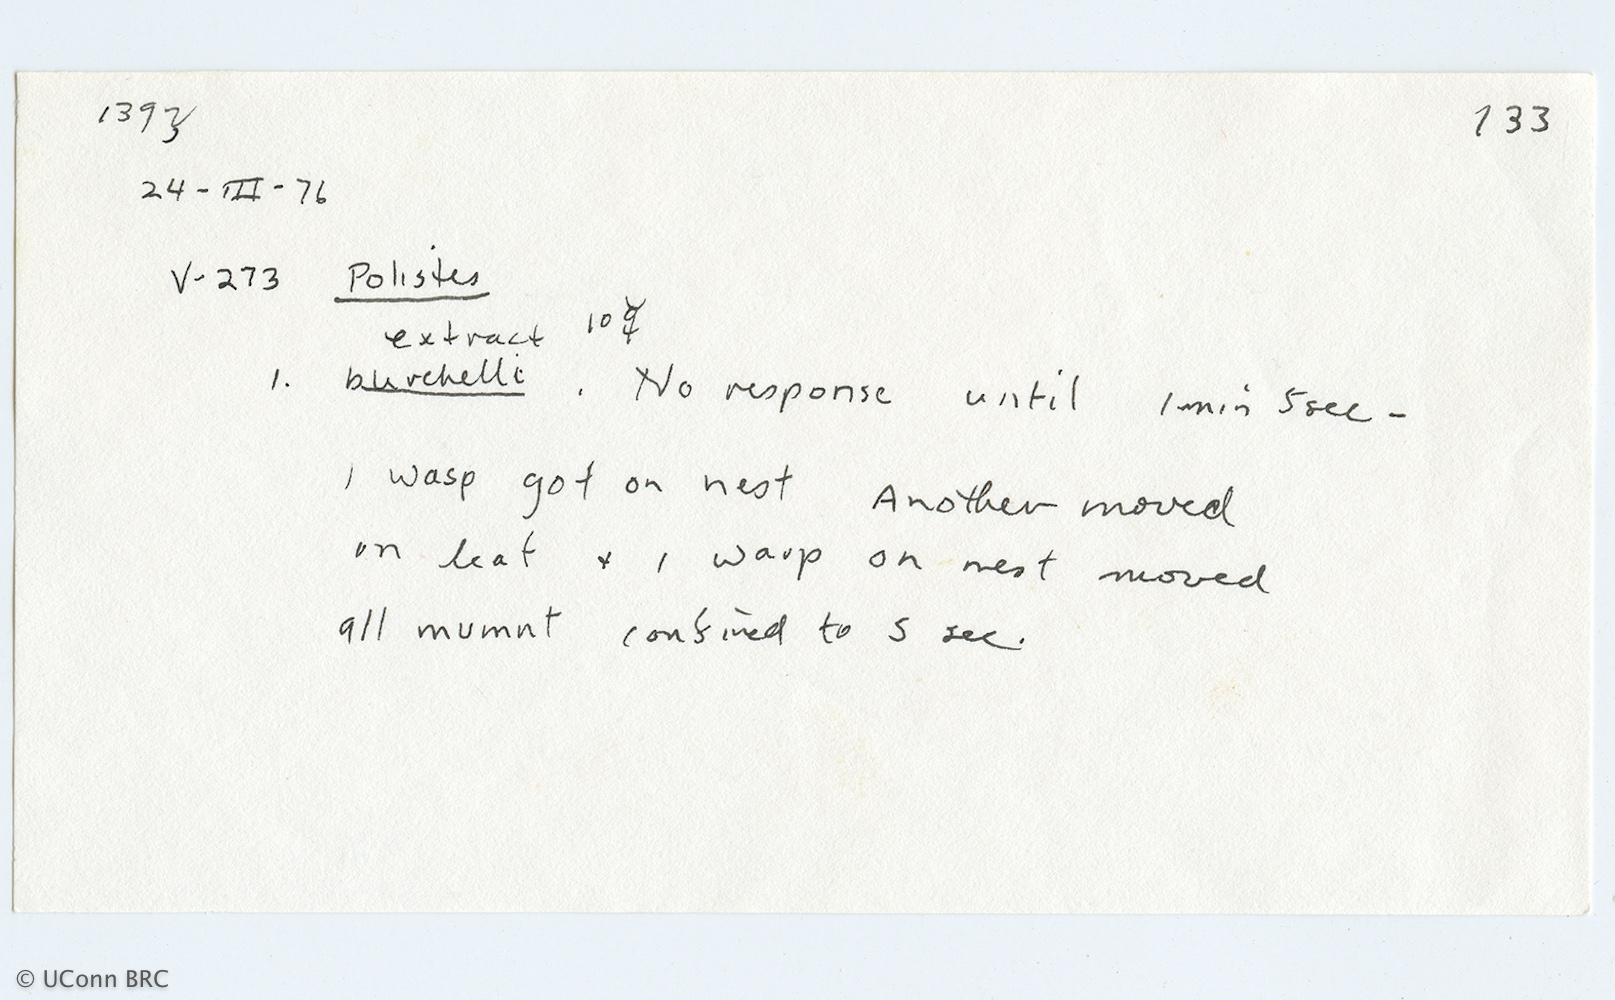 139z 133
24-III-76
V-273 Polistes
extract 10 ☿
1. burchelli . No response until 1 min 5 sec -
1 wasp got on nest Another moved
on leaf + 1 wasp on nest moved
all mvmnt confined to 5 sec.
© UConn BRC